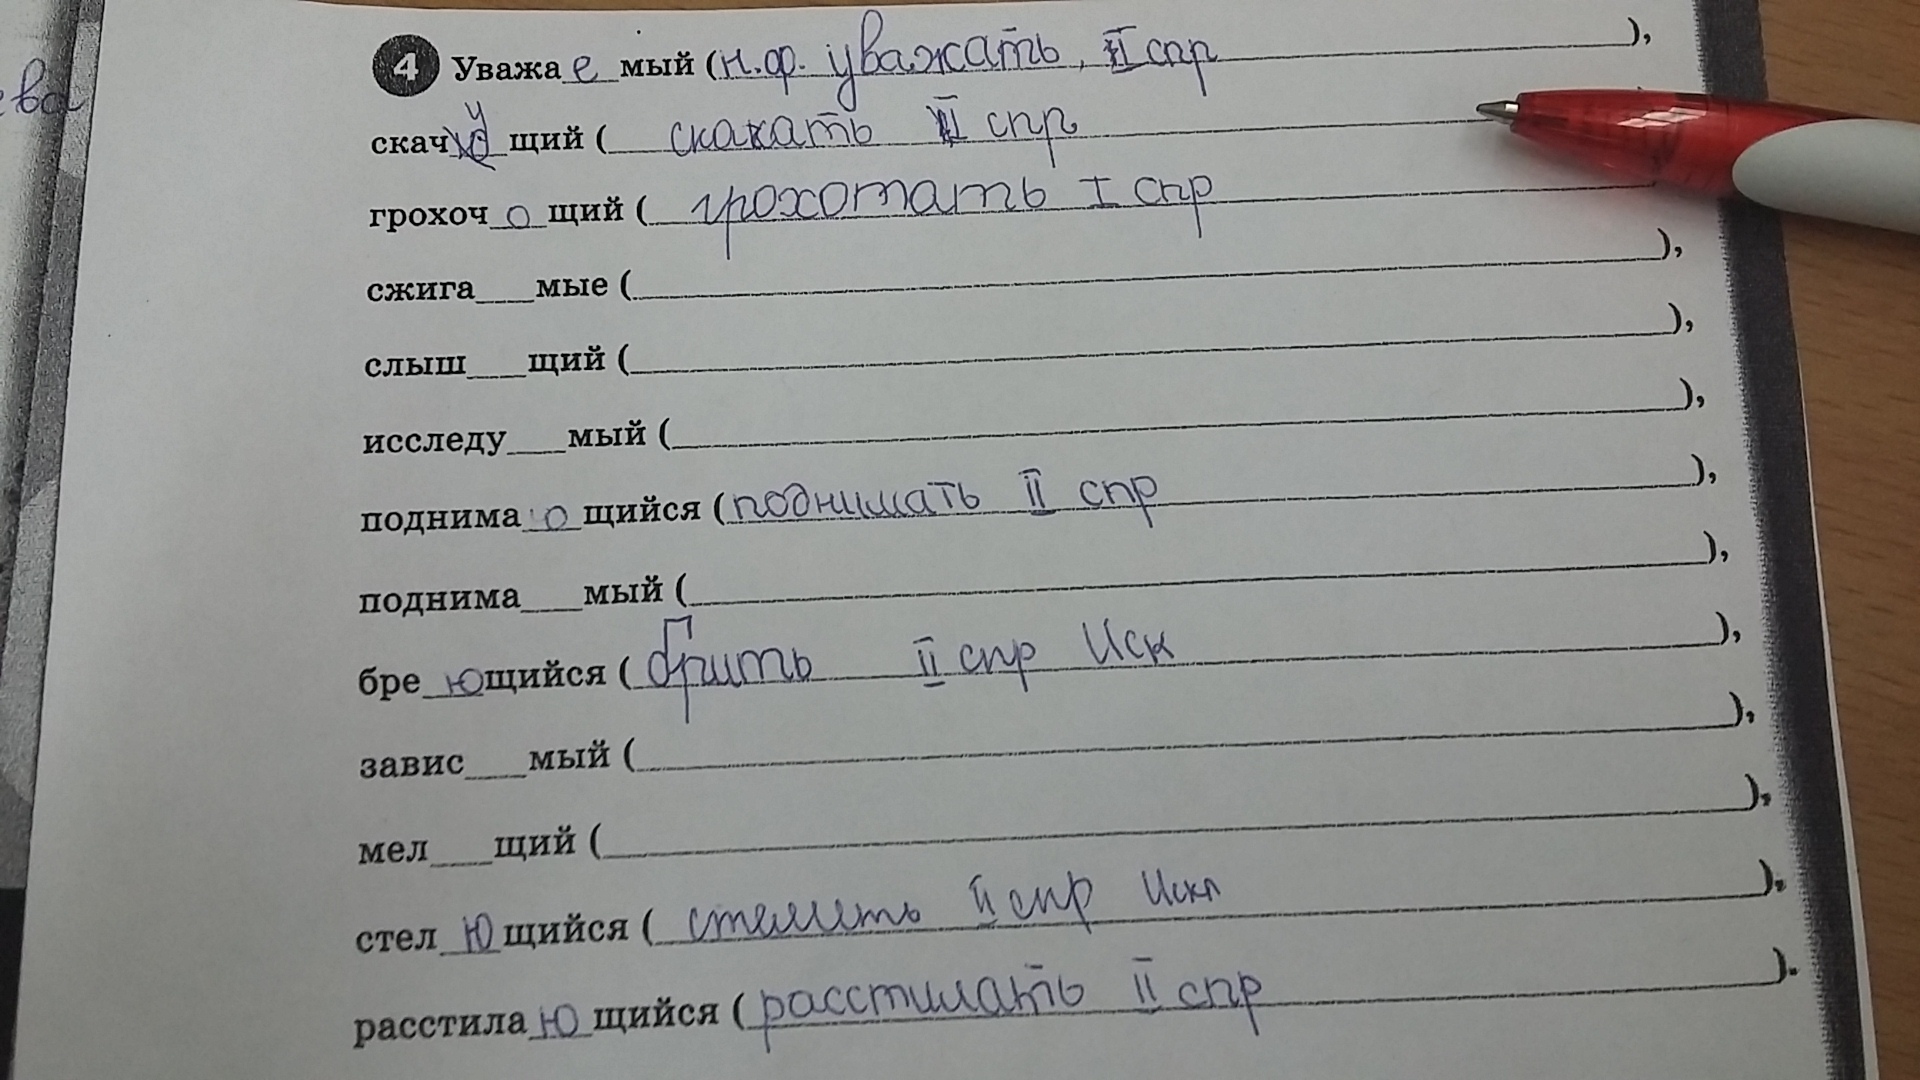 ева
4 Уважа е мый (н.ф. уважать, II спр ),
скач у щий ( скакать II спр
грохоч о щий ( грохотать I спр
сжига___мые (____),
слыш___щий (____),
исследу___мый (____),
поднима ю щийся (поднимать II спр ),
поднима___мый (____),
бре ю щийся ( брить II спр Иск ),
завис___мый (____),
мел___щий (____),
стел ю щийся ( стелить II спр Искл ),
расстила ю щийся ( расстилать II спр ).